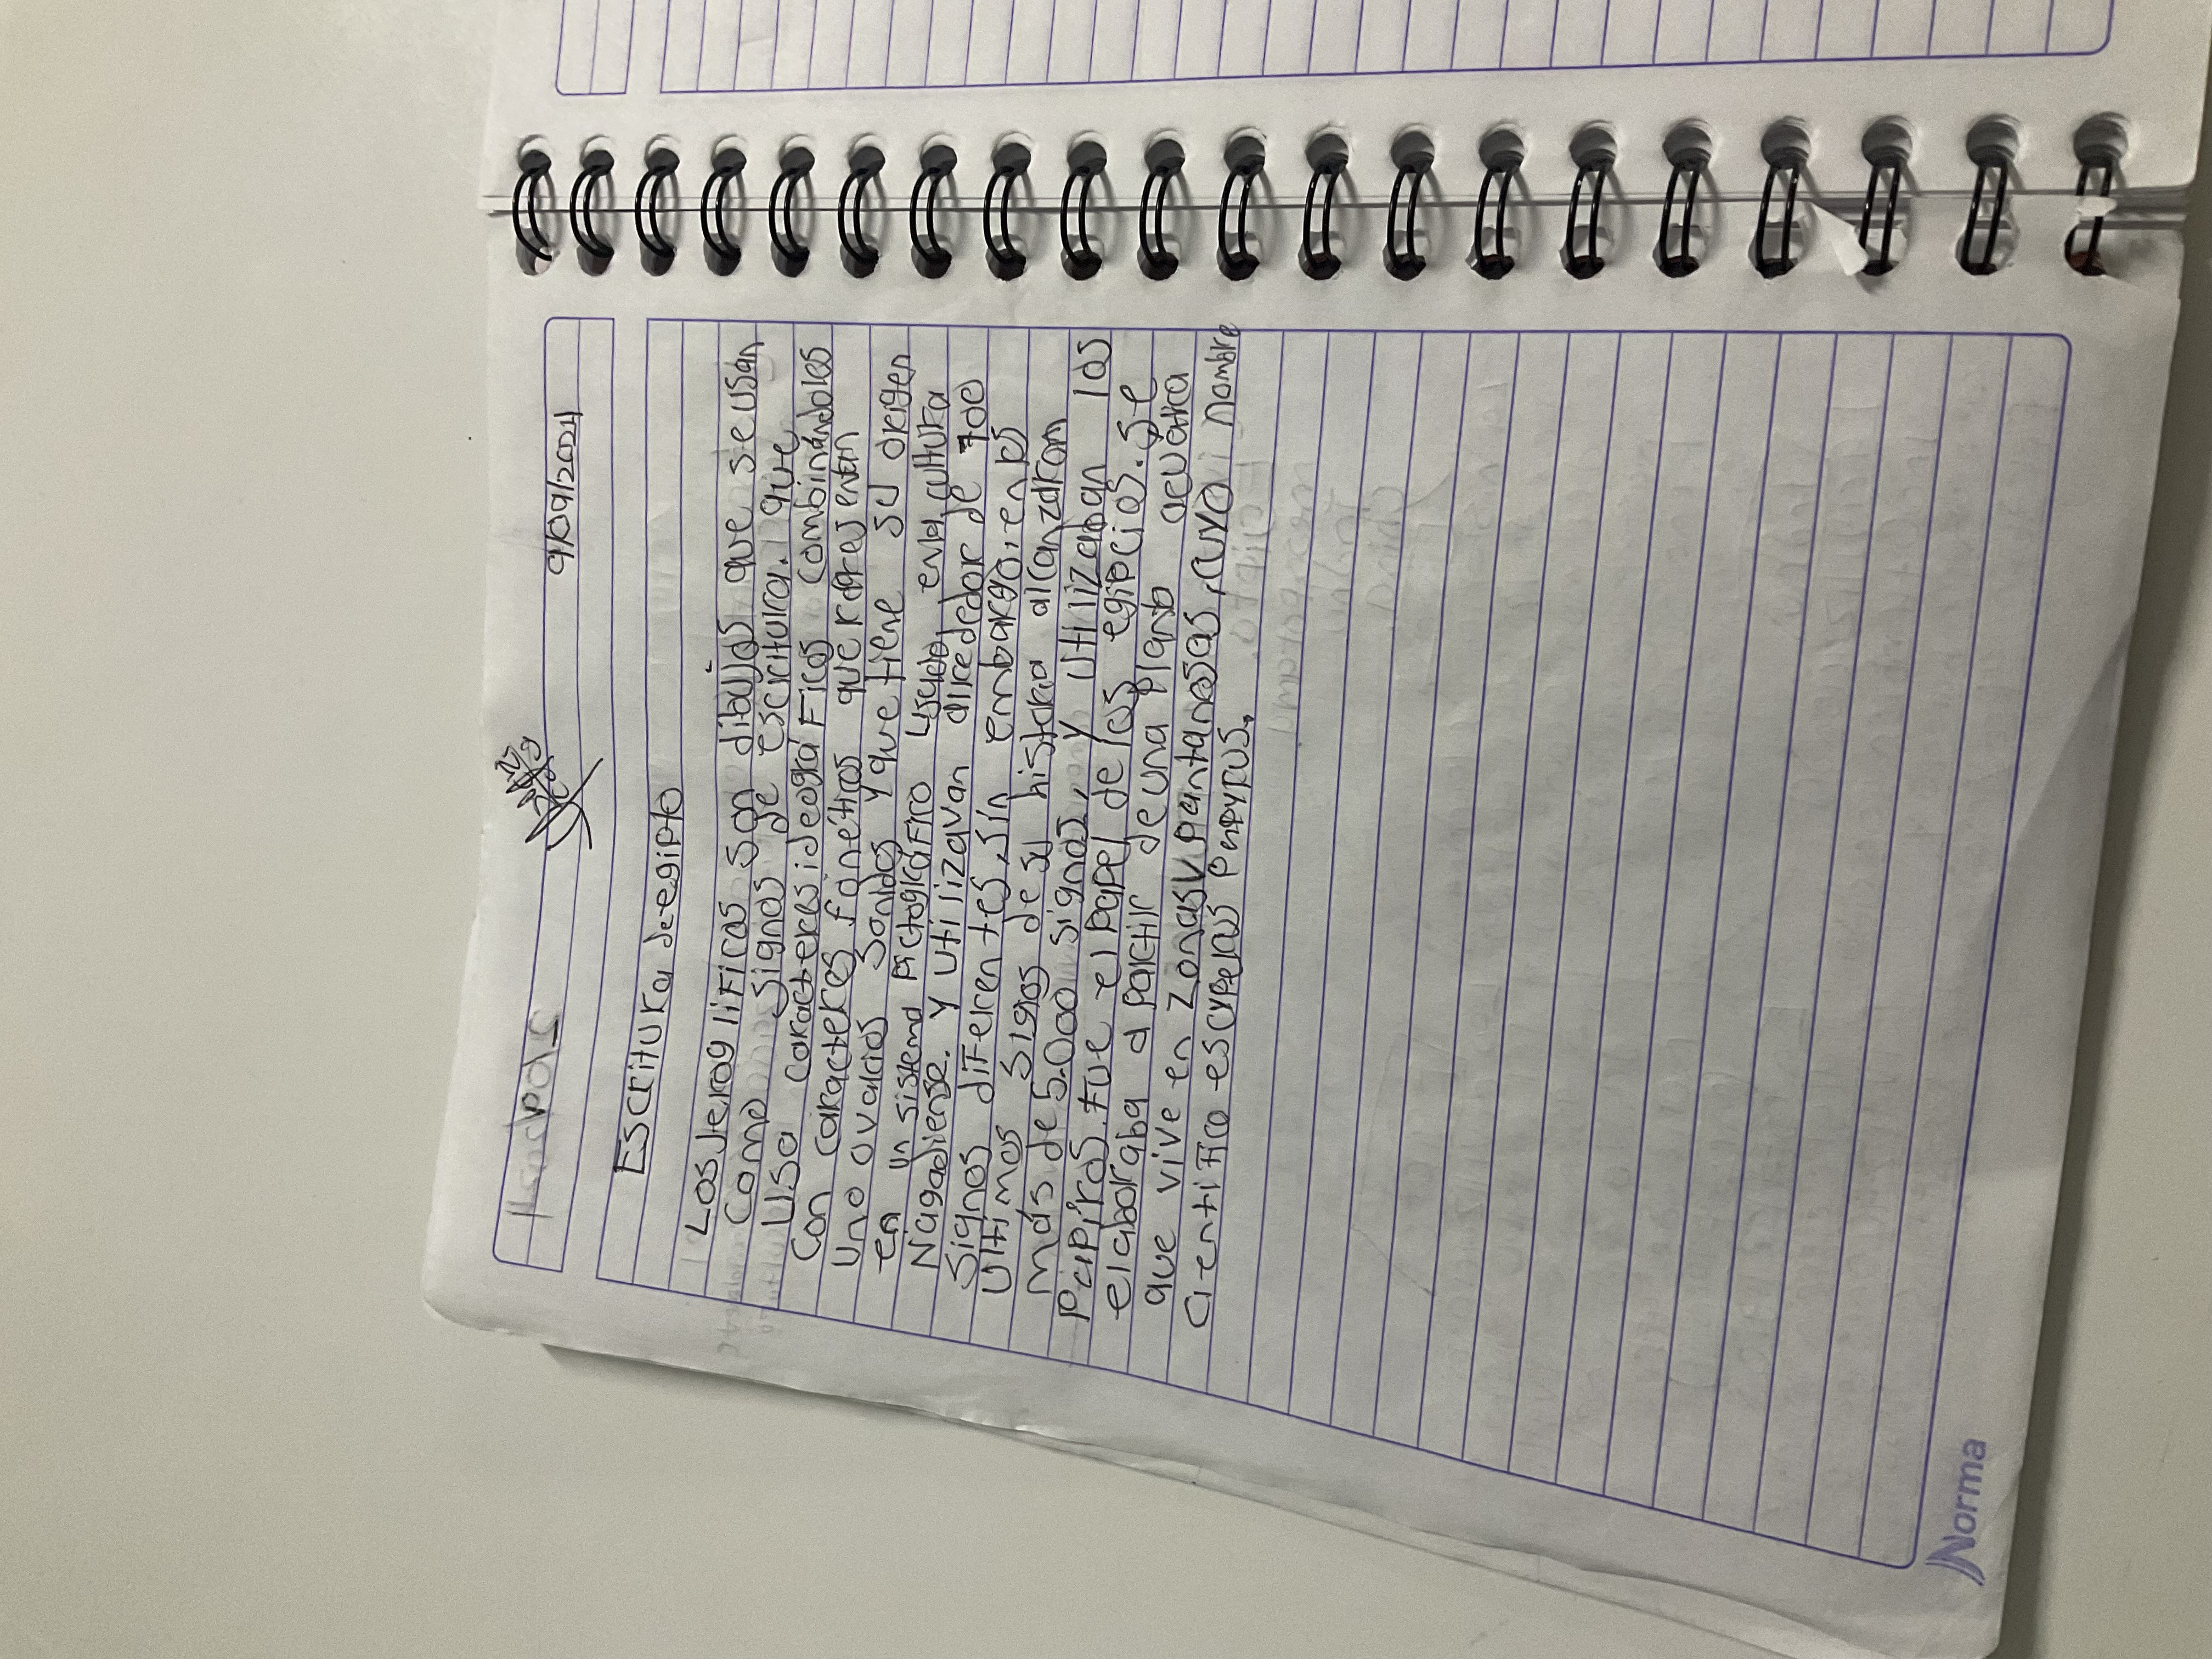 9/09/2024
Escritura de egipto
Los Jeroglificos son dibujos que se usan
Como signos de escritura. que
Usa carácteres ideográficos combinándoles
Con carácteres fonétiros que representan
Uno o varios sonidos y que tiene su origen
en un sistema pictográfico usado en la cultura
Nagadiense. y utilizavan alrededor de 700
Signos diferentes, sin embargo, en los
Ultimos siglos de su historia alcanzaron
más de 5.000 signos, y utilizaban los
Papiros. Fue el papel de los egipcios. Se
elaboraba a partir de una planta acuática
que vive en Zonas pantanosas, cuyo nombre
Cientifico es cyperus papyrus.
Norma